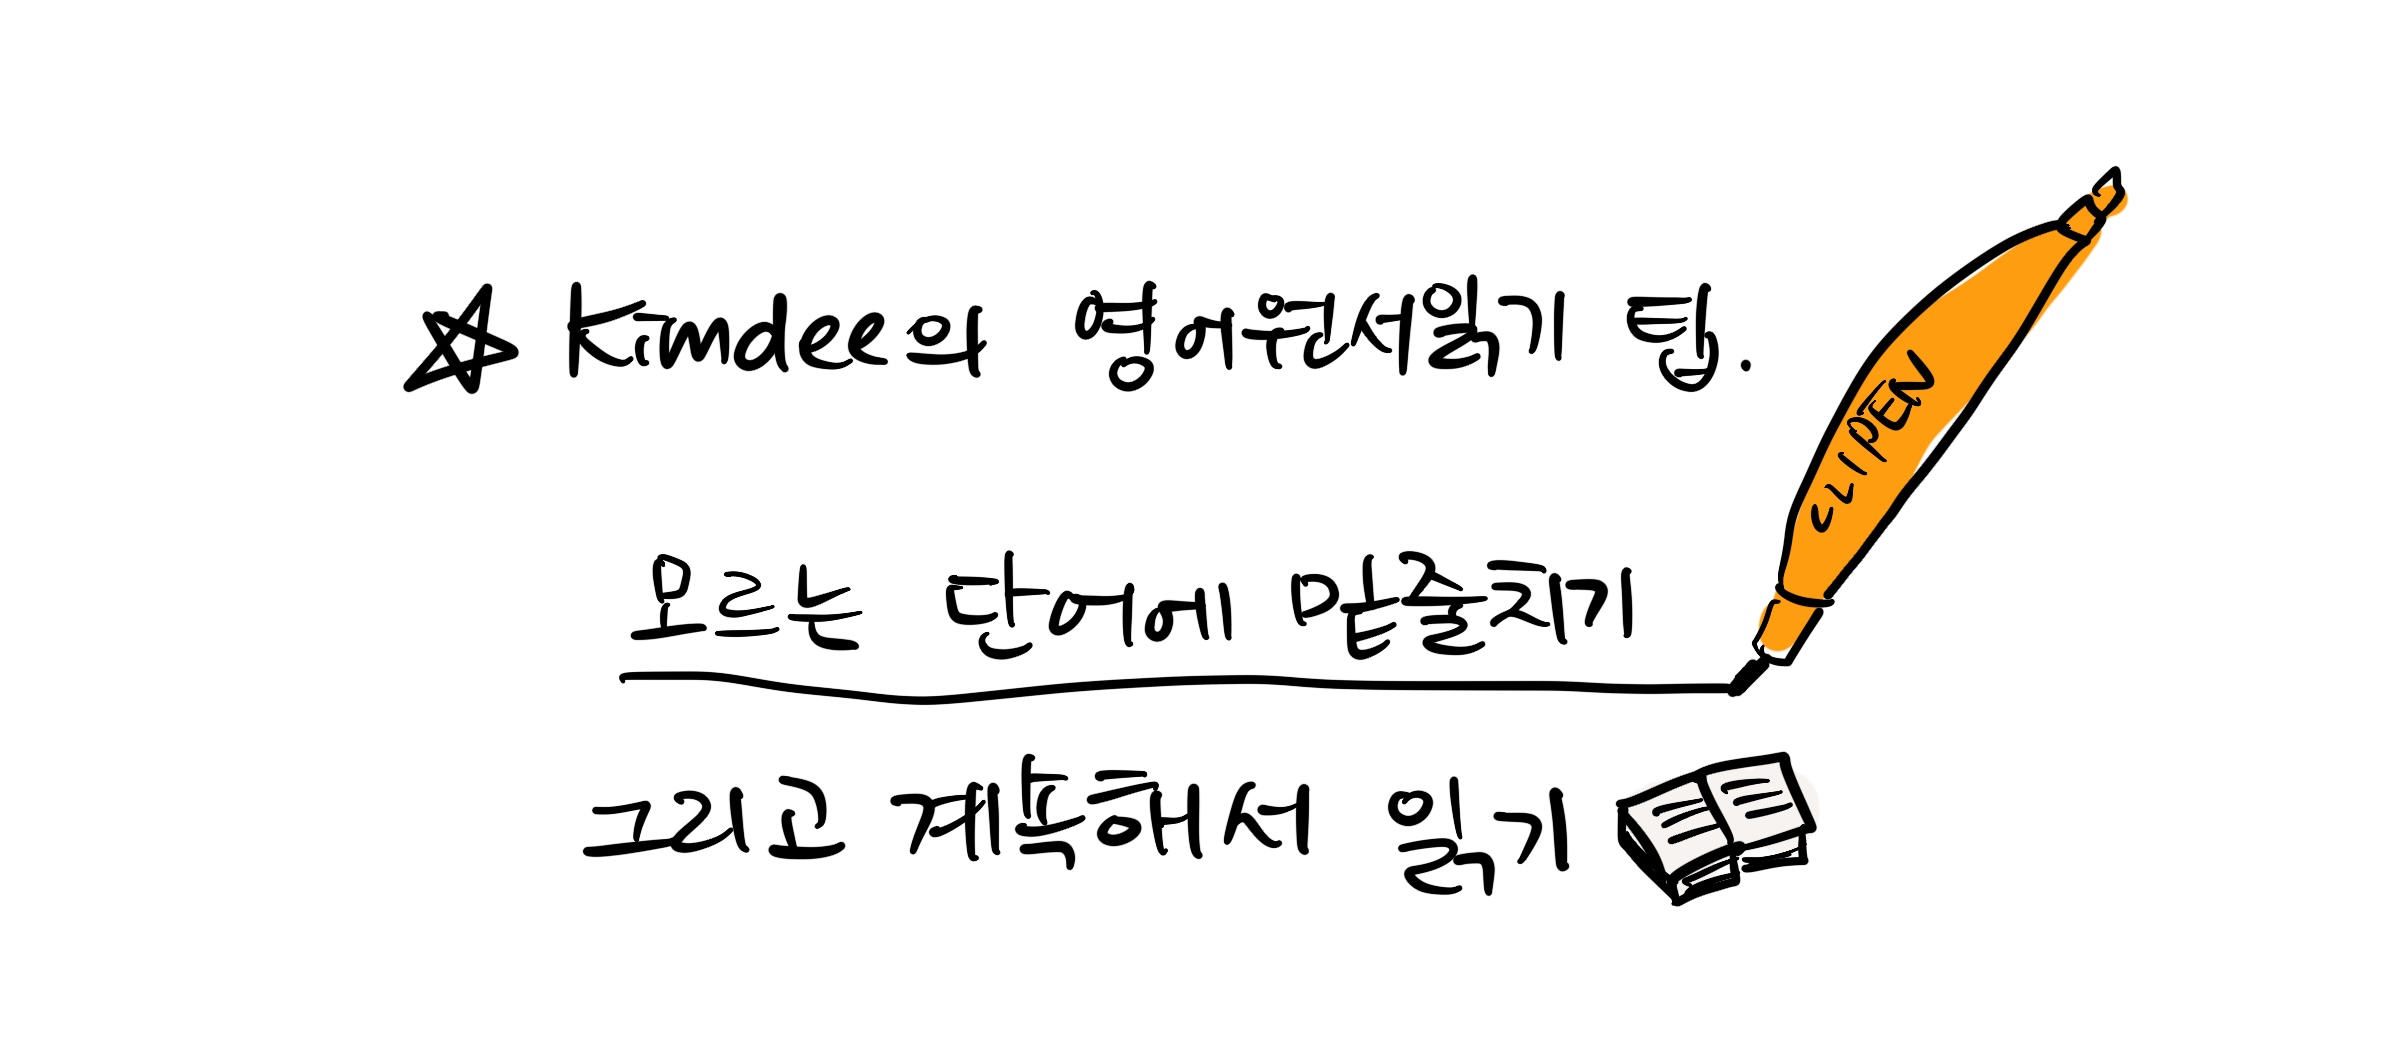 ☆ Kimdee의 영어원서읽기 팁.
CLIPEN
모르는 단어에 밑줄치기
그리고 계속해서 읽기